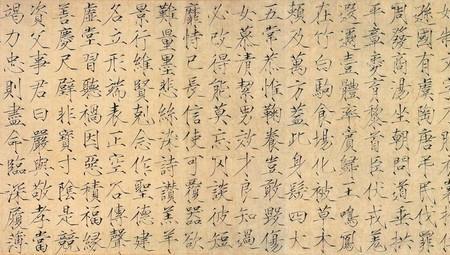 遜國有虞陶唐弔民伐罪
周發商湯坐朝問道垂拱
平章愛育黎首臣伏戎羌
遐邇壹體率賓歸王鳴鳳
在竹白駒食場化被草木
賴及萬方蓋此身髮四大
五常恭惟鞠養豈敢毀傷
女慕清絜男效才良知過
必改得能莫忘罔談彼短
靡恃己長信使可覆器欲
難量墨悲絲染詩讚羔羊
景行維賢克念作聖德建
名立形端表正空谷傳聲
虛堂習聽禍因惡積福緣
善慶尺璧非寶寸陰是競
資父事君曰嚴與敬孝當
竭力忠則盡命臨深履薄